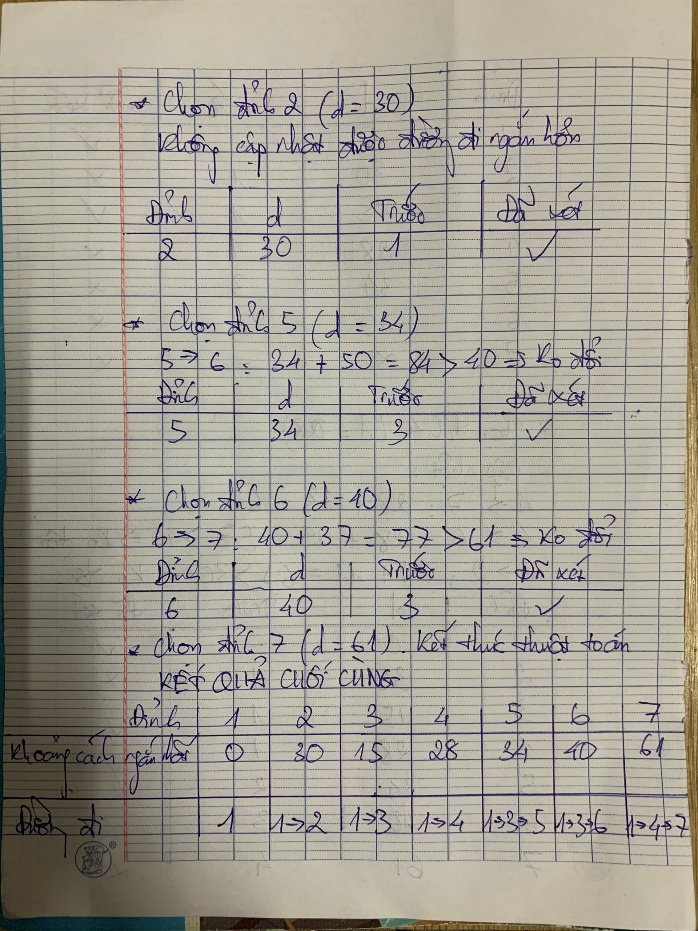 * Chọn đỉnh 2 (d = 30)
Không cập nhật được đường đi ngắn hơn
Đỉnh d Trước Đã xét
2 30 1 ✓
* Chọn đỉnh 5 (d = 34)
5 => 6 : 34 + 50 = 84 > 40 => Ko đổi
Đỉnh d Trước Đã xét
5 34 3 ✓
* Chọn đỉnh 6 (d = 40)
6 => 7 : 40 + 37 = 77 > 61 => Ko đổi
Đỉnh d Trước Đã xét
6 40 3 ✓
* Chọn đỉnh 7 (d = 61). Kết thúc thuật toán
KẾT QUẢ CUỐI CÙNG
Đỉnh 1 2 3 4 5 6 7
Khoảng cách ngắn nhất 0 30 15 28 34 40 61
Đường đi 1 1->2 1->3 1->4 1->3->5 1->3->6 1->4->7